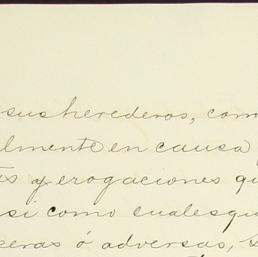 sus herederos, com
lmente en causa
s y erogaciones qu
si como cualesqu
eras ó adversas, s